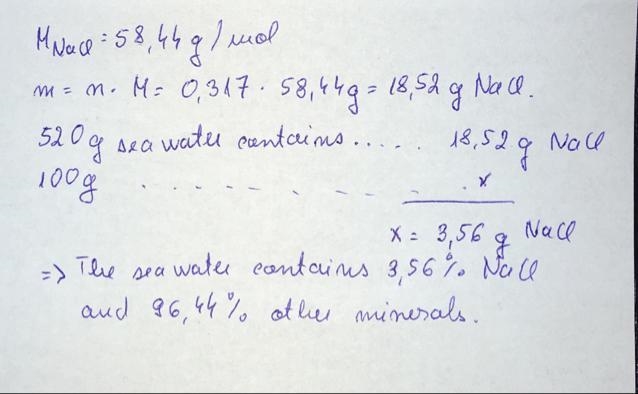 M NaCl = 58,44 g/mol
m = n · M = 0,317 · 58,44g = 18,52 g NaCl.
520g sea water contains ..... 18,52 g NaCl
100g . . . - . . - . - - . x
x = 3,56 g NaCl
=> The sea water contains 3,56% NaCl
and 96,44% other minerals.